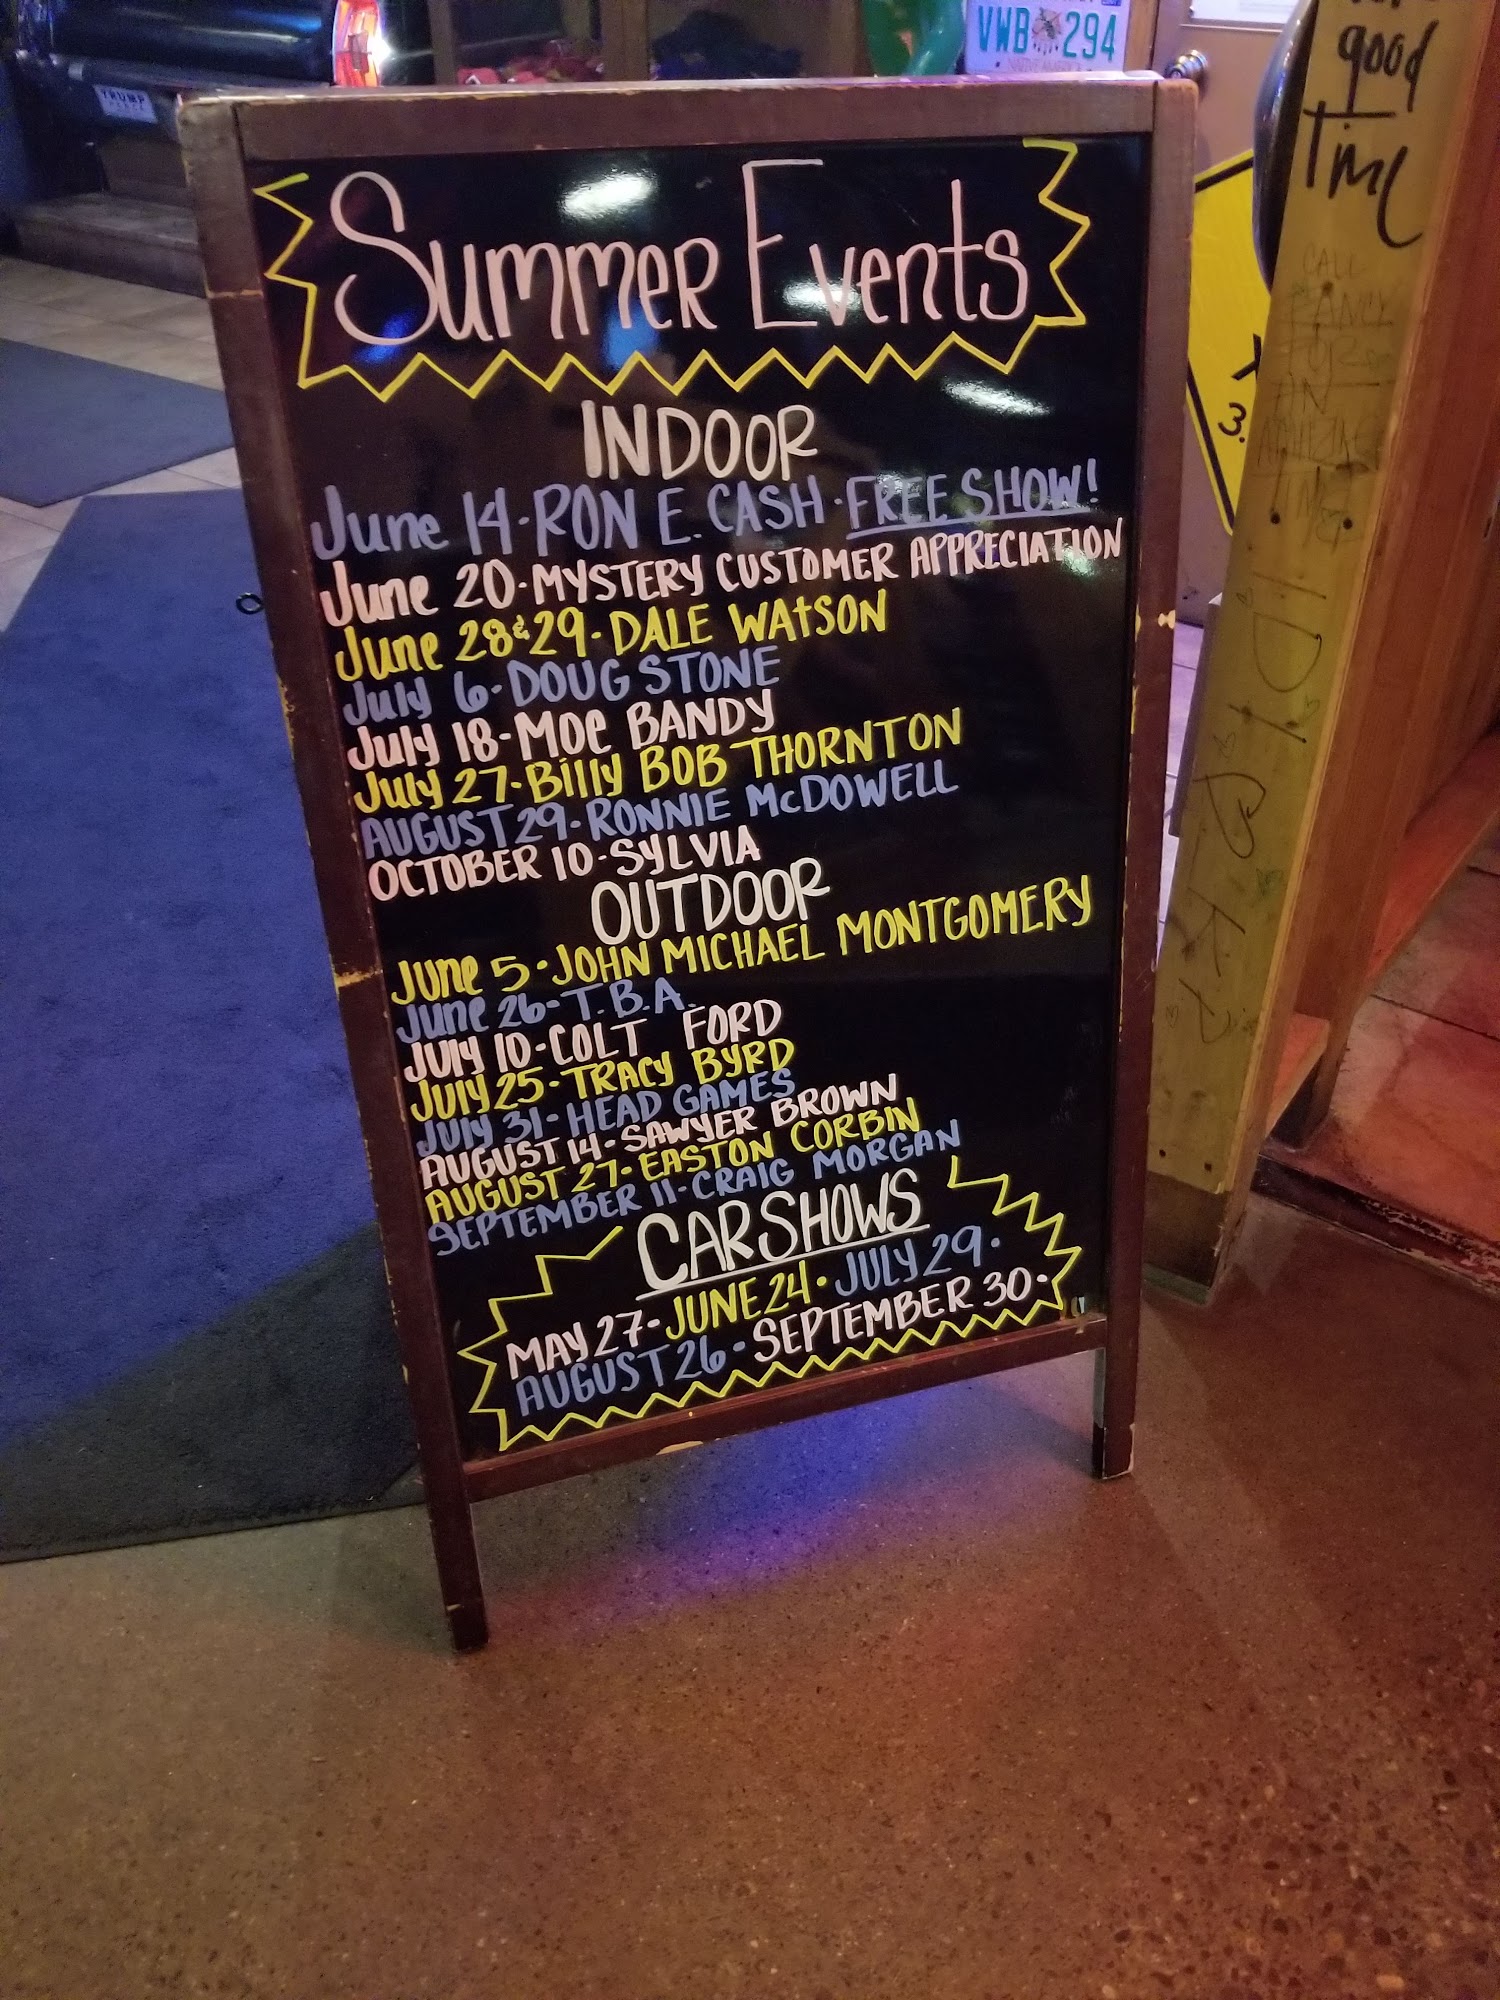 VWB 294
NATIVE AMERICA
TRUMP
PENCE
good
Time
CALL
AN
AMAZING
Summer Events
INDOOR
June 14 · RON E. CASH · FREE SHOW!
June 20 · MYSTERY CUSTOMER APPRECIATION
June 28 & 29 · DALE WATSON
July 6 · DOUG STONE
July 18 - MOE BANDY
July 27 · Billy BOB THORNTON
AUGUST 29 · RONNIE McDOWELL
OCTOBER 10 · SYLVIA
OUTDOOR
June 5 · JOHN MICHAEL MONTGOMERY
June 26 - T.B.A.
July 10 - COLT FORD
July 25 · TRACY BYRD
July 31 · HEAD GAMES
AUGUST 14 · SAWYER BROWN
AUGUST 27 · EASTON CORBIN
SEPTEMBER 11 - CRAIG MORGAN
CAR SHOWS
MAY 27 · JUNE 24 · JULY 29 ·
AUGUST 26 · SEPTEMBER 30 ·